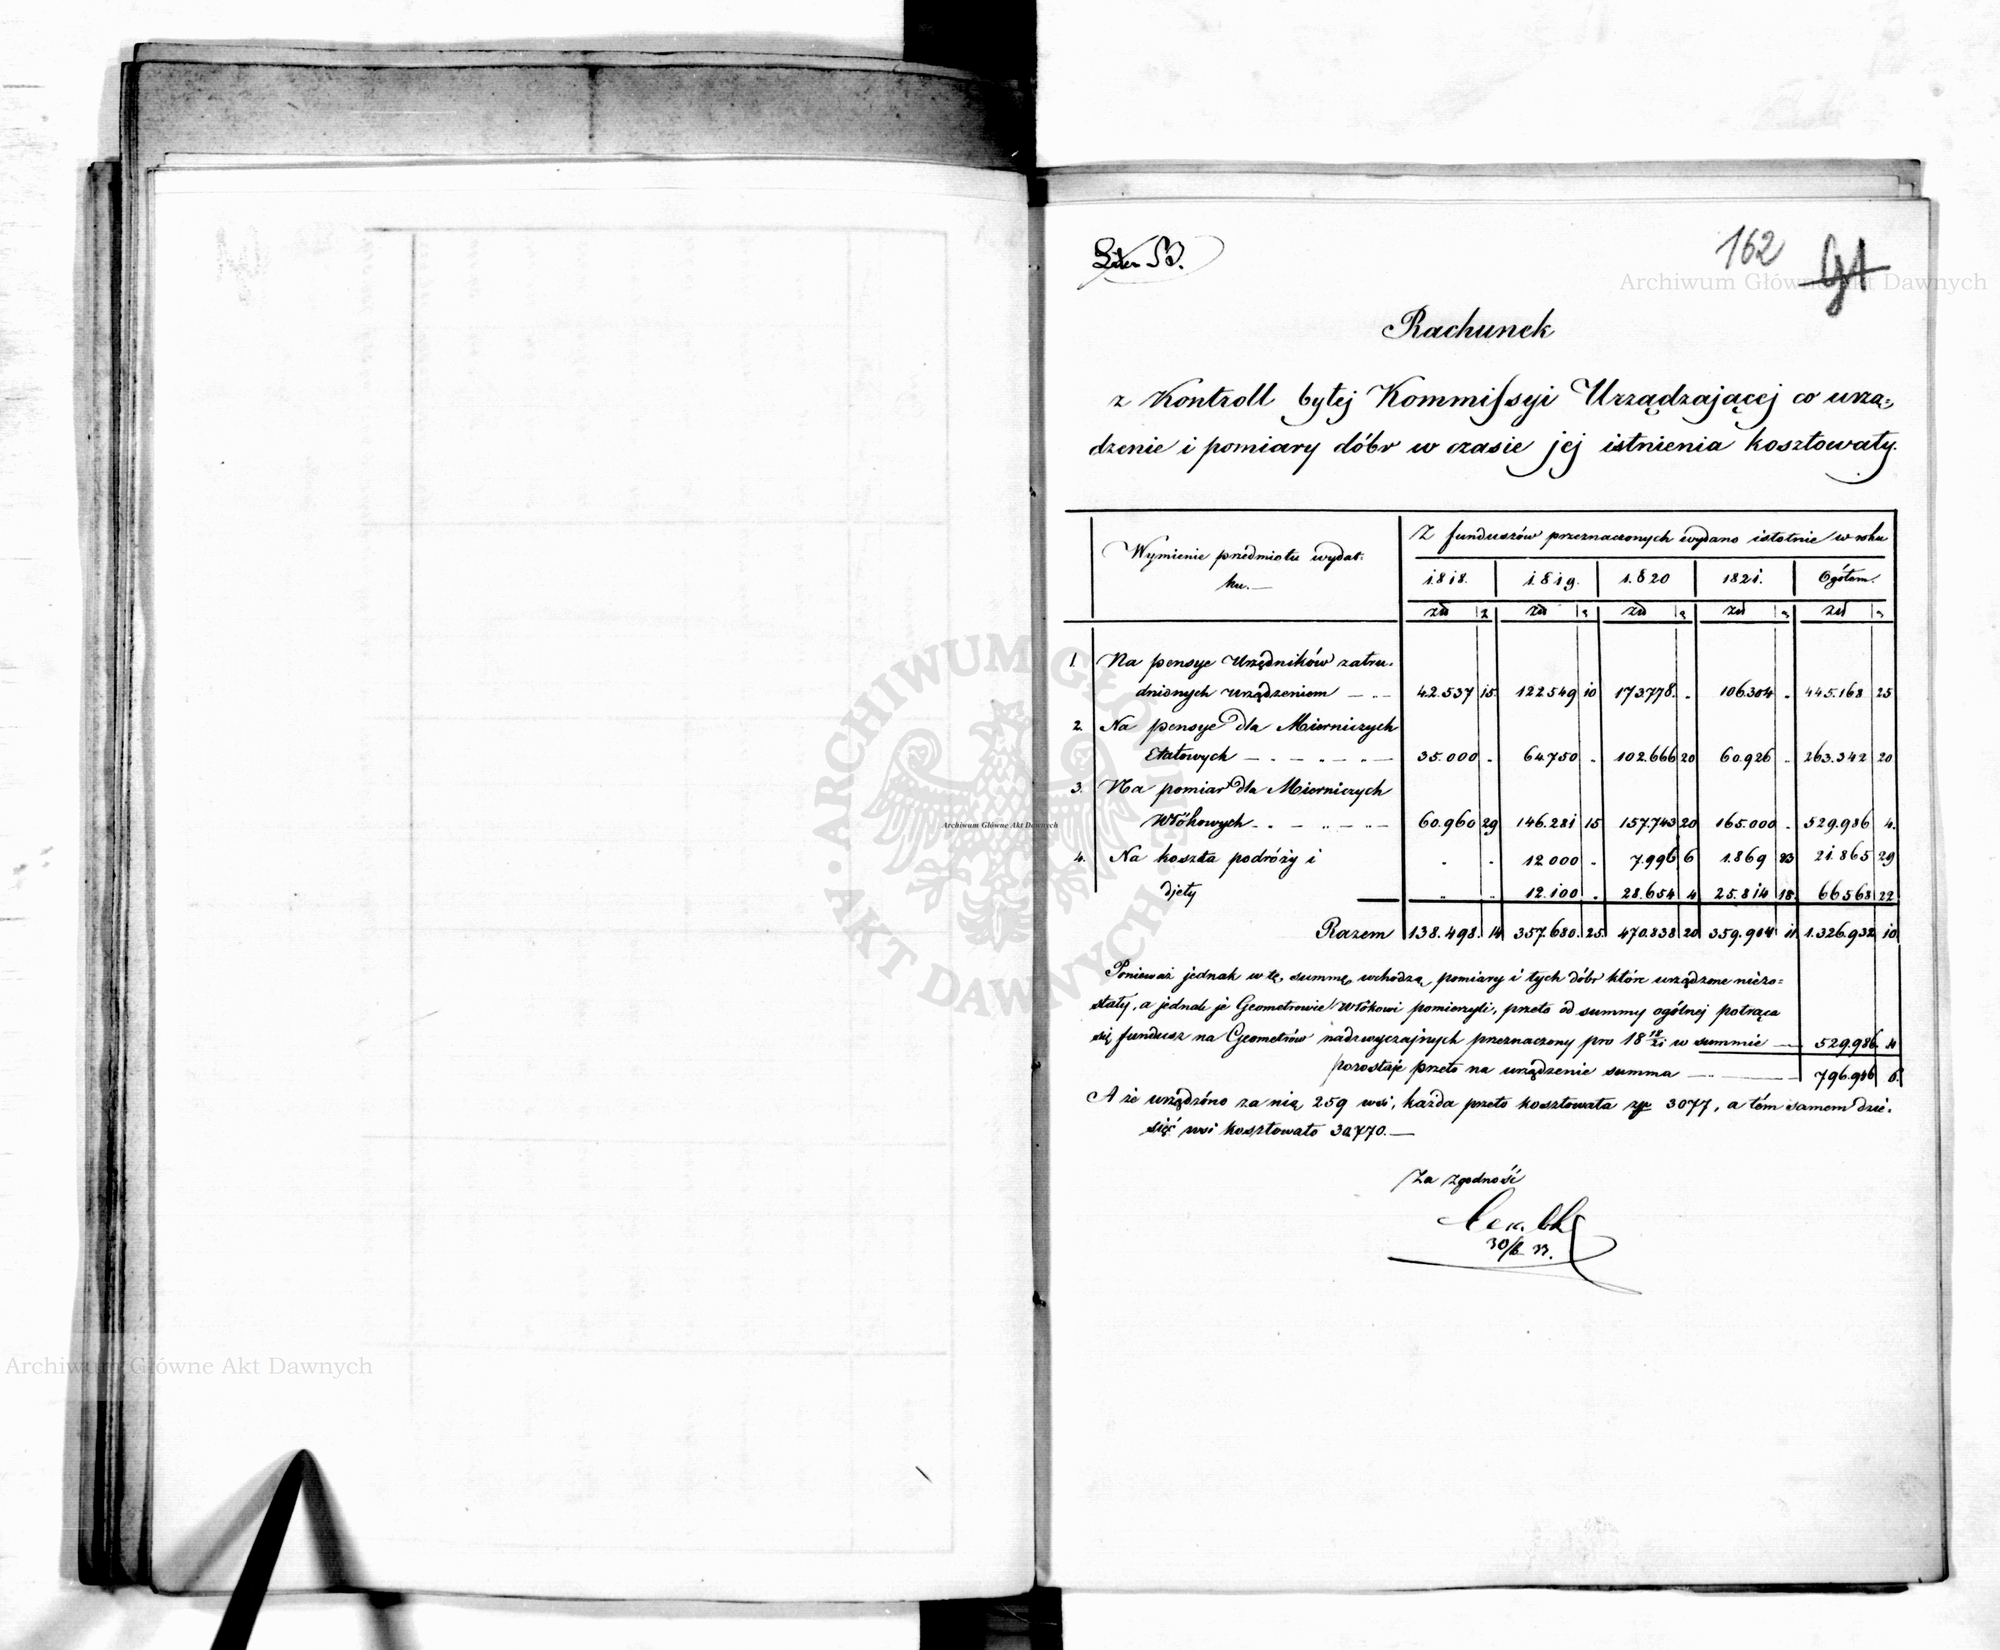 Liter B.
162
91
Rachunek
z Kontroll byłej Kommissyi Urządzającej co urzą=
dzenie i pomiary dóbr w czasie jej istnienia kosztowały.
Wymienie przedmiotu wydat-
ku.—
Z funduszów przeznaczonych wydano istotnie w roku
1818. 1819. 1820 1821. Ogółem.
zł g zł g zł g zł g zł g
1. Na pensye Urzędników zatru-
dnionych urządzeniem — . — 42.537 15 122549 10 173778. . 106.304 . 445.168 25
2. Na pensye dla Mierniczych
Etatowych — . — . — . — 35.000 . 64.750 . 102.666 20 60.926 . 263.342 20
3. Na pomiar dla Mierniczych
Włókowych . . — . — . — 60.960 29 146.281 15 157.743 20 165.000 . 529.986 4.
4. Na koszta podróży i . . 12.000 . 7.996 6 1.869 23 21.865 29
djety . . 12.100 . 28.654 4 25.814 18 66568 22
Razem 138.498. 14 357.680. 25 470.838 20 359.904 11 1.326.932 10
Ponieważ jednak w tę summę wchodzą pomiary i tych dóbr które urządzone niezo=
stały, a jednak je Geometrowie Włókowi pomierzyli, przeto od summy ogólnej potrąca
się fundusz na Geometrów nadzwyczajnych przeznaczony pro 18 18/21 w summie — 529.986. 4
pozostaje przeto na urządzenie summa — 796.946 6.
A że urządzóno za nią 259 wsi, każda przeto kosztowała zp 3077, a tém samem dzie-
sięć wsi kosztowało 30770.—
Za zgodność
30/6 33.
Archiwum Główne Akt Dawnych
Archiwum Główne Akt Dawnych
Archiwum Główne Akt Dawnych
ARCHIWUM GŁÓWNE AKT DAWNYCH